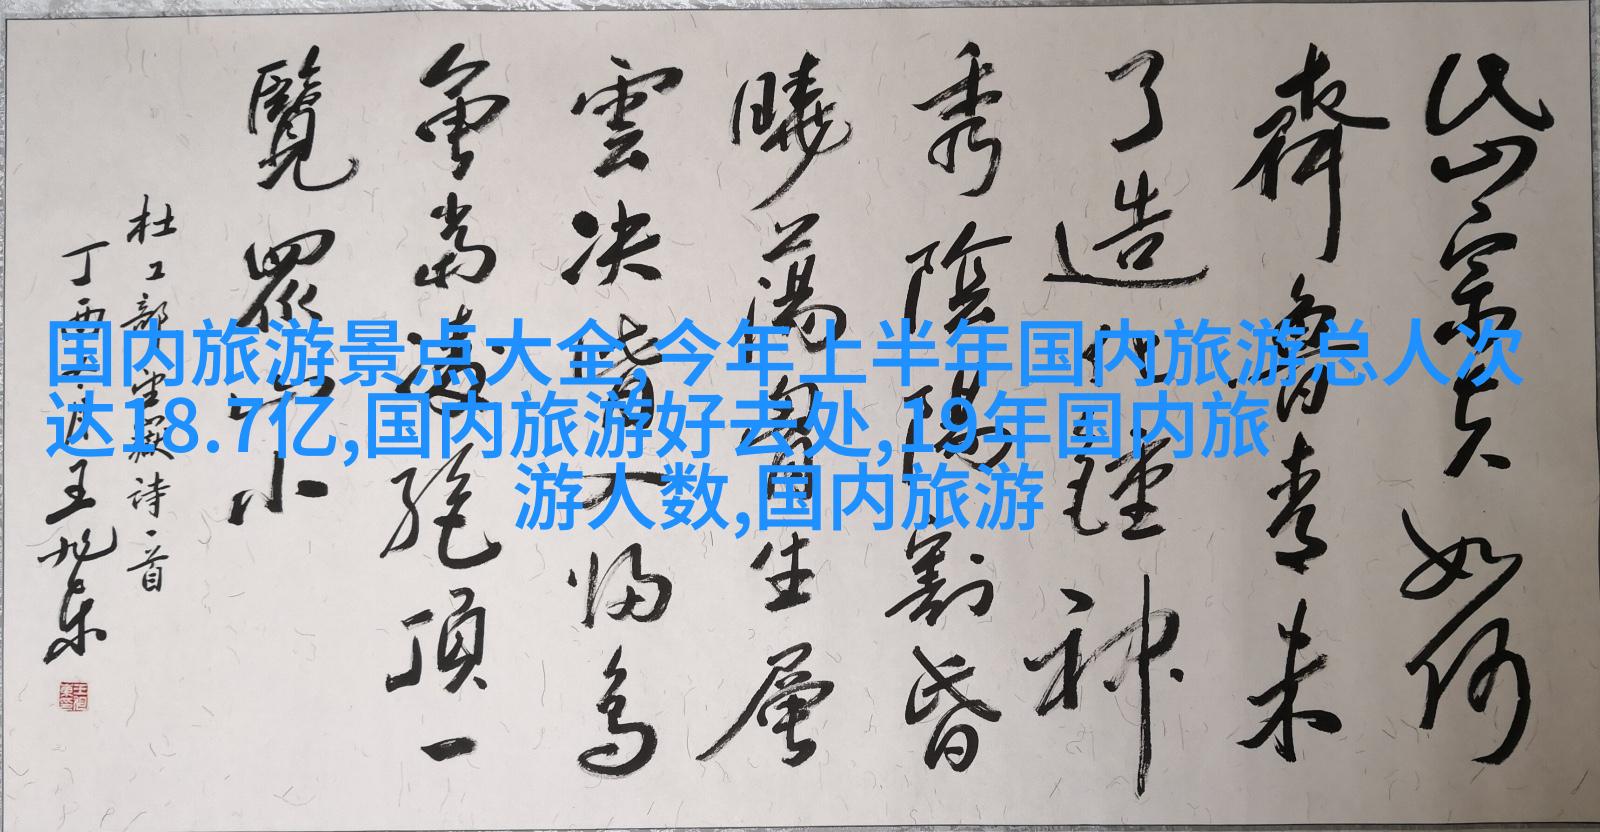 岱宗夫如何
齊魯青未
了造化鍾神
秀陰陽割昏
曉蕩胷生層
雲決眥入歸鳥
會當凌絕頂一
覽眾山小
杜工部望嶽詩一首
丁酉 王旭东
国内旅游景点大全,今年上半年国内旅游总人次
达18.7亿,国内旅游好去处,19年国内旅
游人数,国内旅游